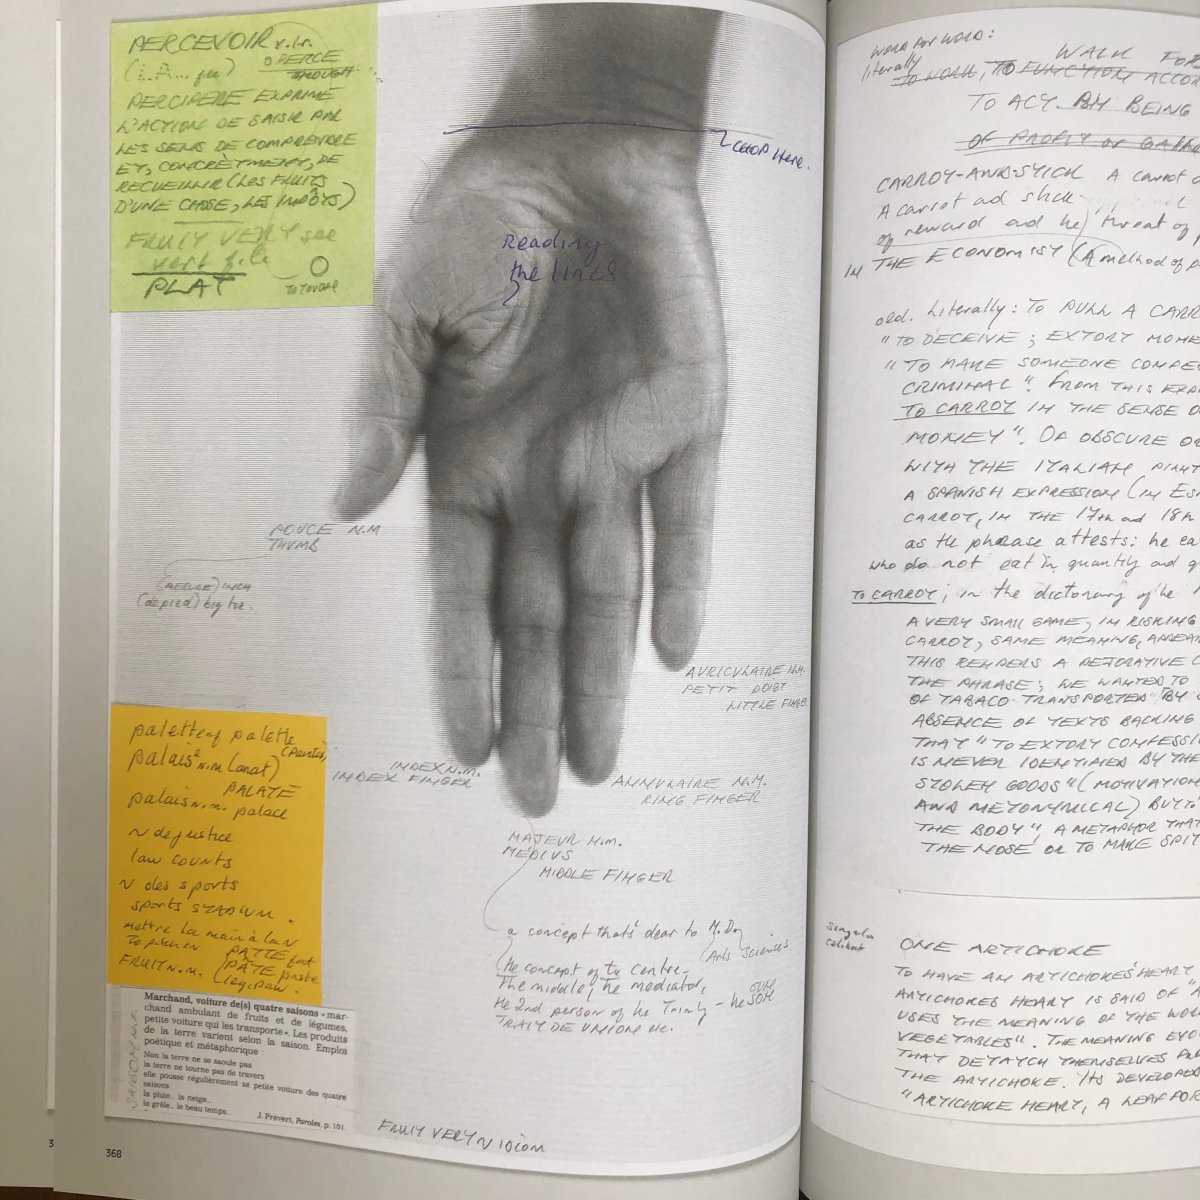 PERCEVOIR v.tr.
PERCE
THOUGH
PERCIPERE EXPRIME
L'ACTION DE SAISIR PAR
LES SENS DE COMPRENDRE
ET, CONCRÈTMENT, DE
RECUEILLIR (LES FRUITS
D'UNE CHOSE, LES IMPÔTS)
FRUIT VERT see
vert file
PLAT
CHOP Here.
Reading
the lines
POUCE N.M
THUMB
(MESURE) INCH
(de pied) big toe.
AURICULAIRE N.M.
PETIT DOIGT
LITTLE FINGER
INDEX N.M.
INDEX FINGER
ANNULAIRE N.M.
RING FINGER
MAJEUR N.M.
MEDIUS
MIDDLE FINGER
a concept that's dear to M.D.
(Arts Sciences
the concept of the centre-
The middle, the mediator,
the 2nd person of the Trinity - the SON
TRAIT DE UNION etc.
palette nf palette
(painter)
palais² n.m (anat)
PALATE
palais n.m. palace
~ de justice
law COURTS
~ des sports
sports STADIUM.
mettre la main à la ~
To pitch in
PATTE foot
PÂTE paste
FRUIT N.M.
leg, paw.
Marchand, voiture de(s) quatre saisons « mar-
chand ambulant de fruits et de légumes,
petite voiture qui les transporte ». Les produits
de la terre varient selon la saison. Emploi
poétique et métaphorique :
Non la terre ne se saoule pas
la terre ne tourne pas de travers
elle pousse régulièrement sa petite voiture des quatre
saisons
la pluie.. la neige..
la grêle.. le beau temps..
J. Prévert, Paroles, p. 101.
SAISON N.F.
FRUIT VERT ~ IDIOM
368
3
WORD FOR WORD:
literally
WALK FOR
TO WORK, TO FUNCTION ACCO
TO ACT BY BEING
OF PROFIT or GAIN
CARROT-AND-STICK A carrot a
A carrot ad stick
of reward and the threat of p
IN THE ECONOMIST (A method of p
old. Literally: TO PULL A CARR
"TO DECEIVE; EXTORT MONE
"TO MAKE SOMEONE CONFES
CRIMINAL". From THIS EXP
TO CARROT IN THE SENSE O
MONEY". OF OBSCURE OR
WITH THE ITALIAN PIANT
A SPANISH EXPRESSION (IN ES
CARROT, IN THE 17th ad 18th
as the phrase attests: he ea
who do not eat in quantity and q
TO CARROT; in the dictionary of the
A VERY SMALL GAME, IN RISKING
CARROT, SAME MEANING, APPEA
THIS RENDERS A PEJORATIVE C
THE PHRASE; WE WANTED TO
OF TABACO TRANSPORTED BY
ABSENCE OF TEXTS BACKING
THAT "TO EXTORT CONFESSI
IS NEVER IDENTIFIED BY THE
STOLEN GOODS" (MOTIVATION
AND METONYMICAL) BUT TO
THE BODY", A METAPHOR THAT
THE NOSE OR TO MAKE SPIT
ONE ARTICHOKE
TO HAVE AN ARTICHOKES' HEART
ARTICHOKES HEART IS SAID OF "A
USES THE MEANING OF THE WOR
VEGETABLES". THE MEANING EVO
THAT DETATCH THEMSELVES FR
THE ARTICHOKE. ITS DEVELOPED
"ARTICHOKE HEART, A LEAF FOR